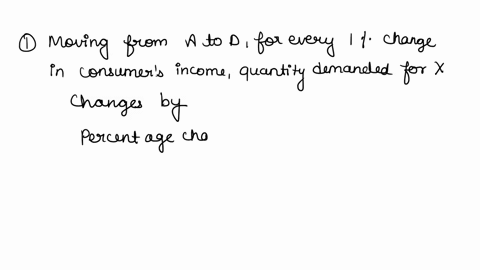 ① Moving from A to D, for every 1% change
in consumer's income, quantity demanded for X
Changes by
Percentage cha